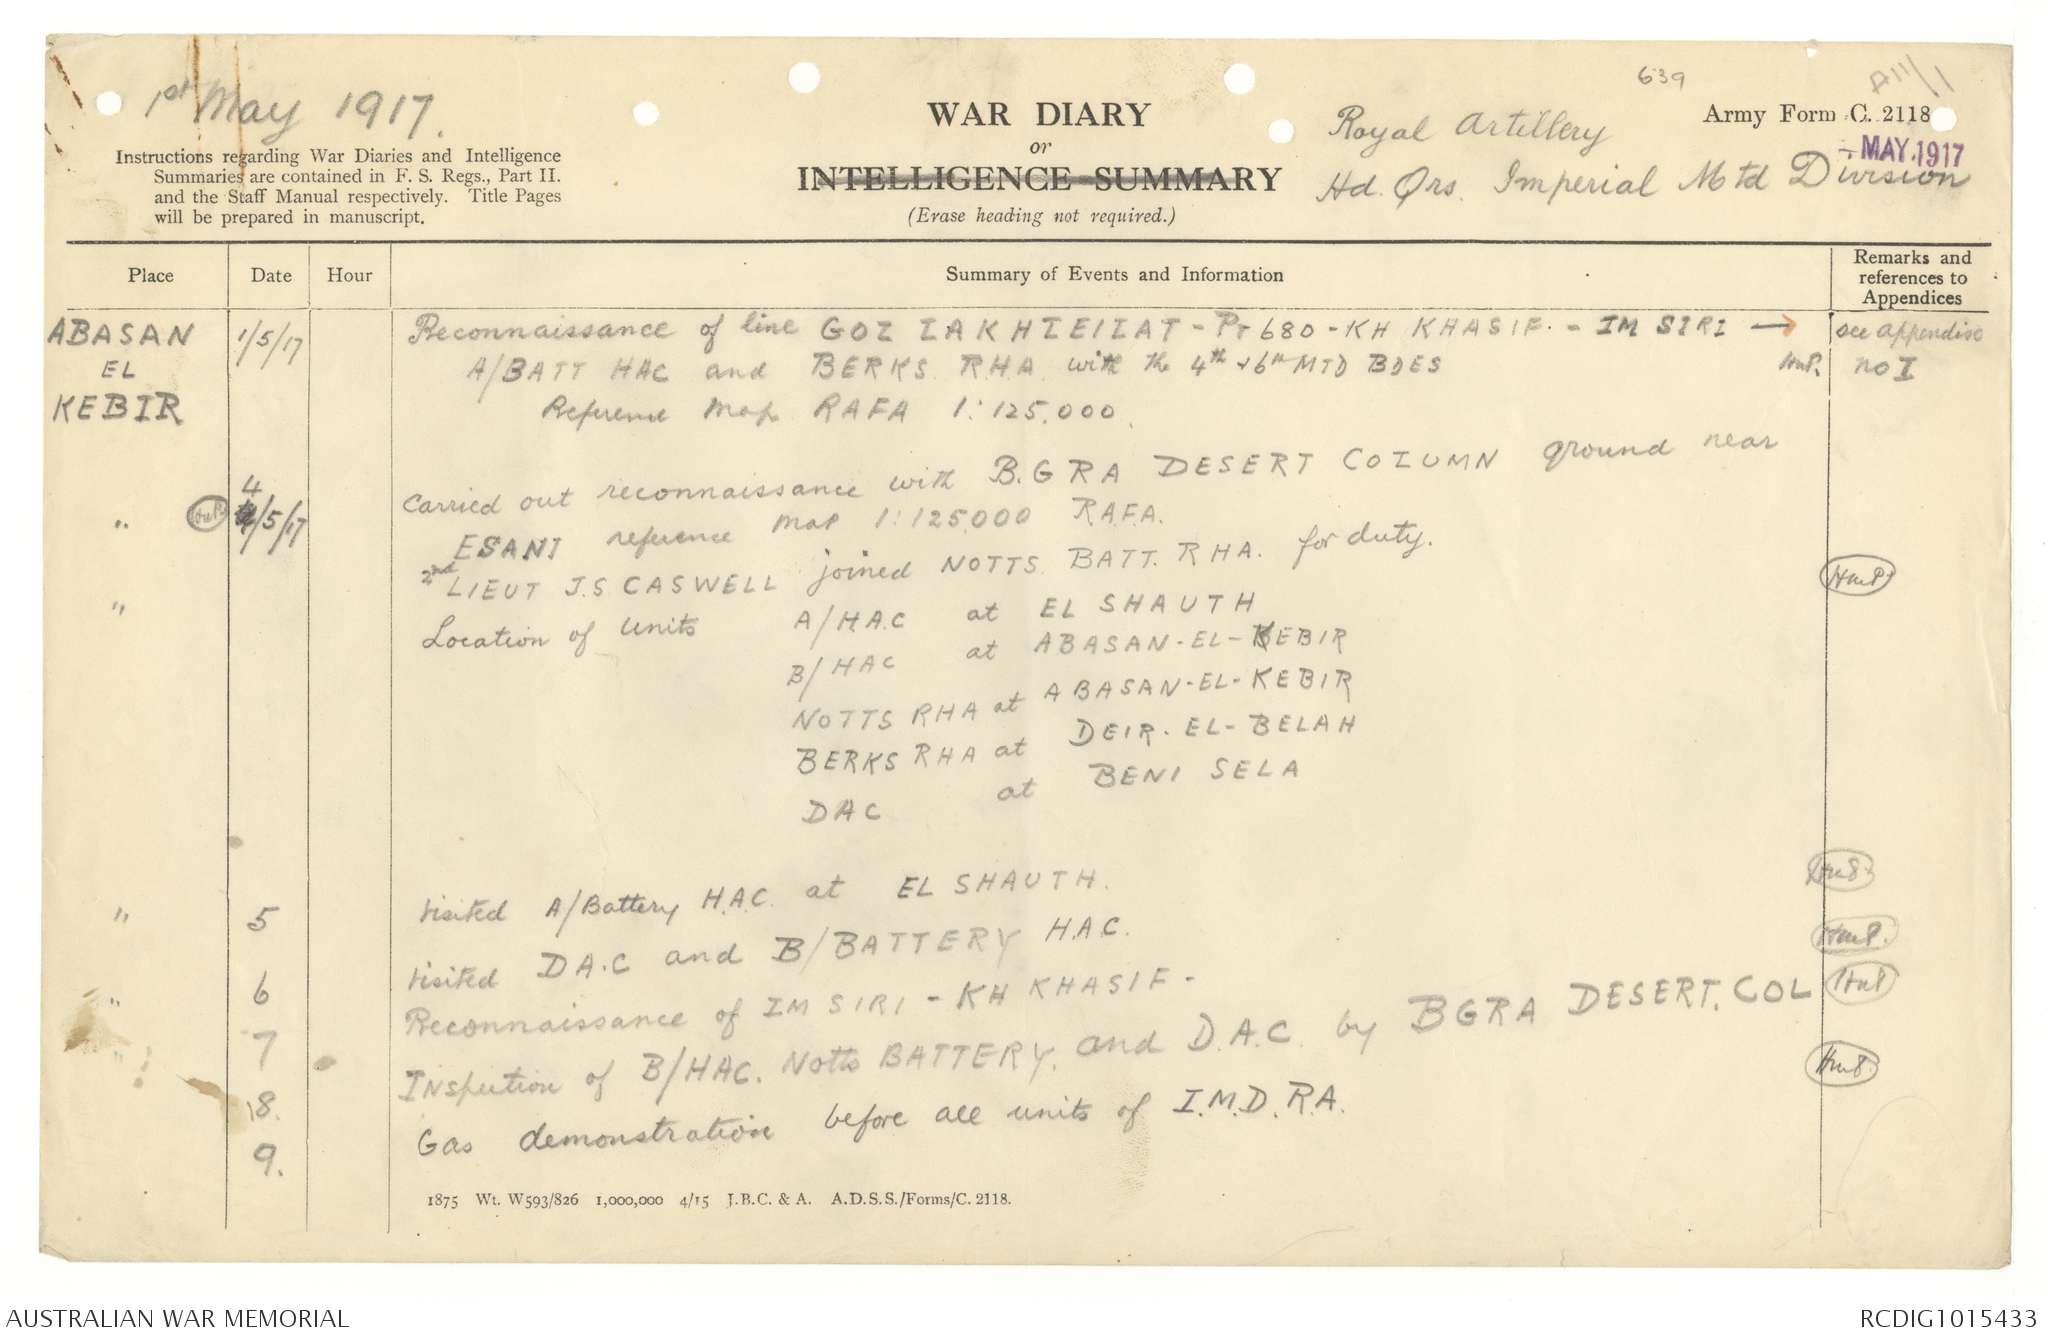 1st May 1917.
639
A111/1
WAR DIARY
or
INTELLIGENCE SUMMARY
(Erase heading not required.)
Instructions regarding War Diaries and Intelligence
Summaries are contained in F. S. Regs., Part II.
and the Staff Manual respectively. Title Pages
will be prepared in manuscript.
Army Form C. 2118
MAY.1917
Royal Artillery
Hd. Qrs. Imperial Mtd Division
Place Date Hour Summary of Events and Information Remarks and references to Appendices
ABASAN EL KEBIR 1/5/17 Reconnaissance of line GOZ LAKHLEILAT - Pt 680 - KH KHASIF. - IM SIRI → see appendix
A/BATT HAC and BERKS RHA with the 4th & 6th MTD BDES HMP. no I
Reference Map RAFA 1:125,000.
" HMP. 4/5/17 Carried out reconnaissance with B.G.R.A DESERT COLUMN ground near
ESANI reference map 1:125000 RAFA.
" 2nd LIEUT J.S CASWELL joined NOTTS BATT. RHA. for duty. HMP.
Location of units A/H.A.C at EL SHAUTH
B/HAC at ABASAN-EL-KEBIR
NOTTS RHA at ABASAN-EL-KEBIR
BERKS RHA at DEIR-EL-BELAH
DAC at BENI SELA
" 5 Visited A/Battery H.A.C. at EL SHAUTH. HMP.
" 6 Visited DA.C and B/BATTERY H.A.C. HMP.
" 7 Reconnaissance of IM SIRI - KH KHASIF - HMP
8. Inspection of B/HAC. Notts BATTERY. and D.A.C. by BGRA DESERT. COL
9. Gas demonstration before all units of I.M.D. R.A. HMP.
1875 Wt. W593/826 1,000,000 4/15 J.B.C. & A. A.D.S.S./Forms/C. 2118.
AUSTRALIAN WAR MEMORIAL RCDIG1015433